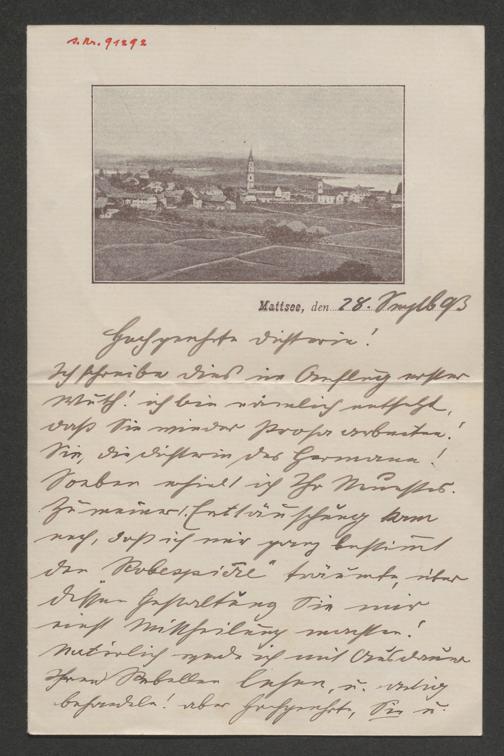 s. Nr. 91292
Mattsee, den 28. Septb 93
Hochgeehrte Dichterin!
Ich schreibe dies im Anflug erster
Wuth! ich bin nämlich entsetzt,
daß Sie wieder Prosa arbeiten!
Sie, die Dichterin des Hermann!
Soeben erhielt ich Ihr Neuestes.
Zu meiner Enttäuschung kam
noch, daß ich nur ganz bestimmt
den „Robespierre“ träumte, über
dessen Gestaltung Sie mir
einst Mittheilung machten!
Natürlich werde ich mit Ausdauer
Ihren Rebellen lesen, u. artig
behandeln! aber Hochgeehrte, Sie u.